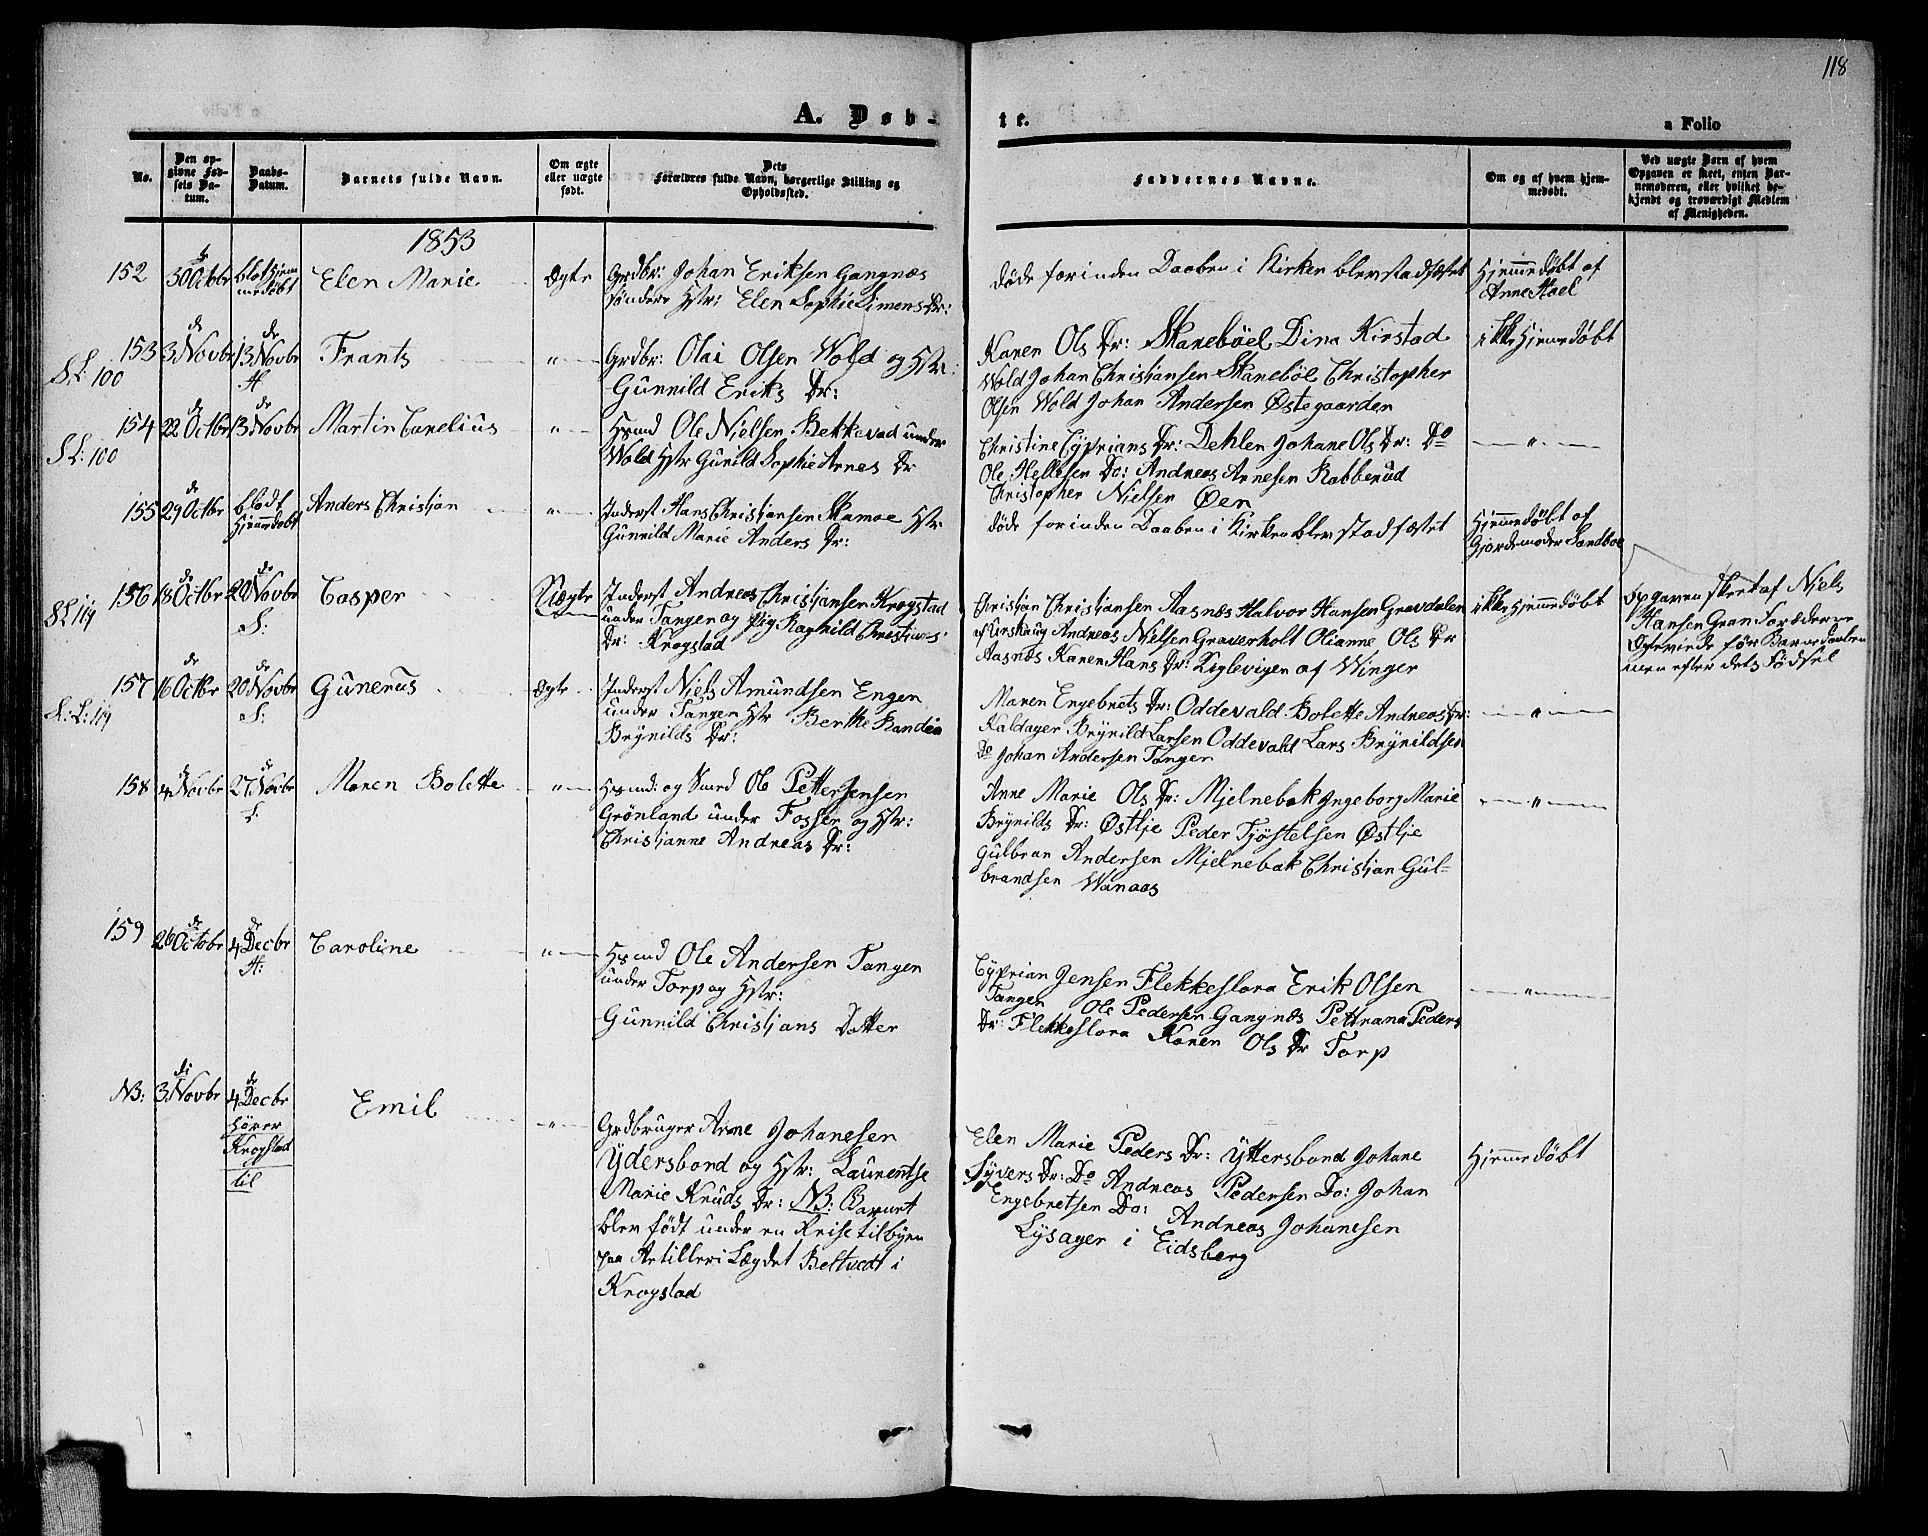 118
A. Døb-
te.
a Folio
No.
Den op-
givne Fød-
sels Da-
tum.
Daabs-
Datum.
Barnets fulde Navn.
Om ægte
eller uægte
født.
Dets
Forældres fulde Navn, borgerlige Stilling og
Opholdssted.
Faddernes Navne.
Om og af hvem hjem-
medøbt.
Ved uægte Børn af hvem
Opgaven er skeet, enten Bar-
nemoderen, eller hvilket be-
kjendt og troværdigt Medlem
af Menigheden.
1853
152
30 Octobr
blot hjem
medøbt
Elen Marie
Ægte
Grdbr: Johan Eriksen Gangnæs
søndere Hstr: Elen Sophie Simens Dr:
døde forinden Daaben i Kirken blev stadfæstet
Hjemmedøbt af
Anne Stael
153
S L: 100
de
3 Novbr
de
13 Novbr
H
Frants
"
Grdbr: Olai Olsen Wold og Hstr:
Gunnild Eriks Dr:
Karen Ols Dr: Skaneböel Dina Kirstad
Wold Johan Christjansen Skaneböe Christopher
Olsen Wold Johan Andersen Østegaarden
ikke Hjemedøbt
154
S L: 100
de
22 Octbr
de
13 Novbr
Martin Carelius
"
Hsmd Ole Nielsen Bekkevad under
Wold Hstr Gunild Sophie Arnes Dr
Christine Cyprians Dr: Dehlen Johane Ols Dr: Do
Ole Hellesen Do: Andreas Arnesen Rabberud
Christopher Nielsen Øen
"
155
de
29 Octbr
blodt
Hjemmedøbt
Anders Christjan
"
Inderst Hans Christjansen Skamoe Hstr
Gunnild Marie Anders Dr:
døde forinden Daaben i Kirken blev stadfæstet
Hjemmedøbt af
Gjordemoder Sandboe
156
S L 119
de
18 Octbr
de
20 Novbr
S:
Casper
Uægte
Inderst Andreas Christjansen Krogstad
under Tangen og Pig Ragnild Chrestines
Dr: Krogstad
Christjan Christjansen Aasnæs Halvor Hansen Gravdalen
af Urskaug Andreas Nielsen Graverholt Olianne Ols Dr
Aasnæs Karen Hans Dr: Keglevigen af Winger
ikke Hjemmedøbt
Opgaven skeet af Niels
Hansen Gran Forældrene
Ægteviede før Barnedaaben
men efter dets Fødsel
157
S: L: 119
de
16 Octbr
de
20 Novbr
S:
Gunerus
Ægte
Inderst Niels Amundsen Engen
under Tangen Hstr Berthe Randin
Brynilds Dr:
Maren Engebrets Dr: Oddevald Bolette Andreas Dr:
Kaldager Brynild Larsen Oddevald Lars Brynildsen
Do Johan Andersen Tangen
"
158
de
4 Novbr
de
27 Novbr
S:
Maren Bolette
"
Hsmd: og Smed Ole Pettersensen
Grönland under Fosser og Hstr:
Christjanne Andreas Dr:
Anne Marie Ols Dr: Mjelnebak Ingeborg Marie
Brynilds Dr: Østlje Peder Tjöstelsen Østlje
Gulbran Andersen Mjelnebak Christjan Gul-
brandsen Wanaas
"
159
de
26 Octobr
de
4 Decbr
H:
Caroline
"
Hsmd Ole Andersen Tangen
under Torp og Hstr:
Gunnild Christjans Datter
Cyprian Jensen Flekkeslora Erik Olsen
Tangen Ole Pedersen Gangnæs Pettrana Peders
Dr: Flekkeslora Karen Ols Dr Torp
"
NB:
di
3 Novbr
de
4 Decbr
hører
Krogstad
til
Emil
"
Grdbruger Arne Johanesen
Ydersbond og Hstr: Laurentse
Marie Knuds Dr: NB: Barnet
blev født under en Reise til byen
paa Artilleri Lægdet Beltvedt i
Krogstad
Elen Marie Peders Dr: Yttersbond Johane
Syvers Dr: Do Andreas Pedersen Do: Johan
Engebretsen Do: Andreas Johanesen
Lysager i Eidsberg
Hjemedøbt